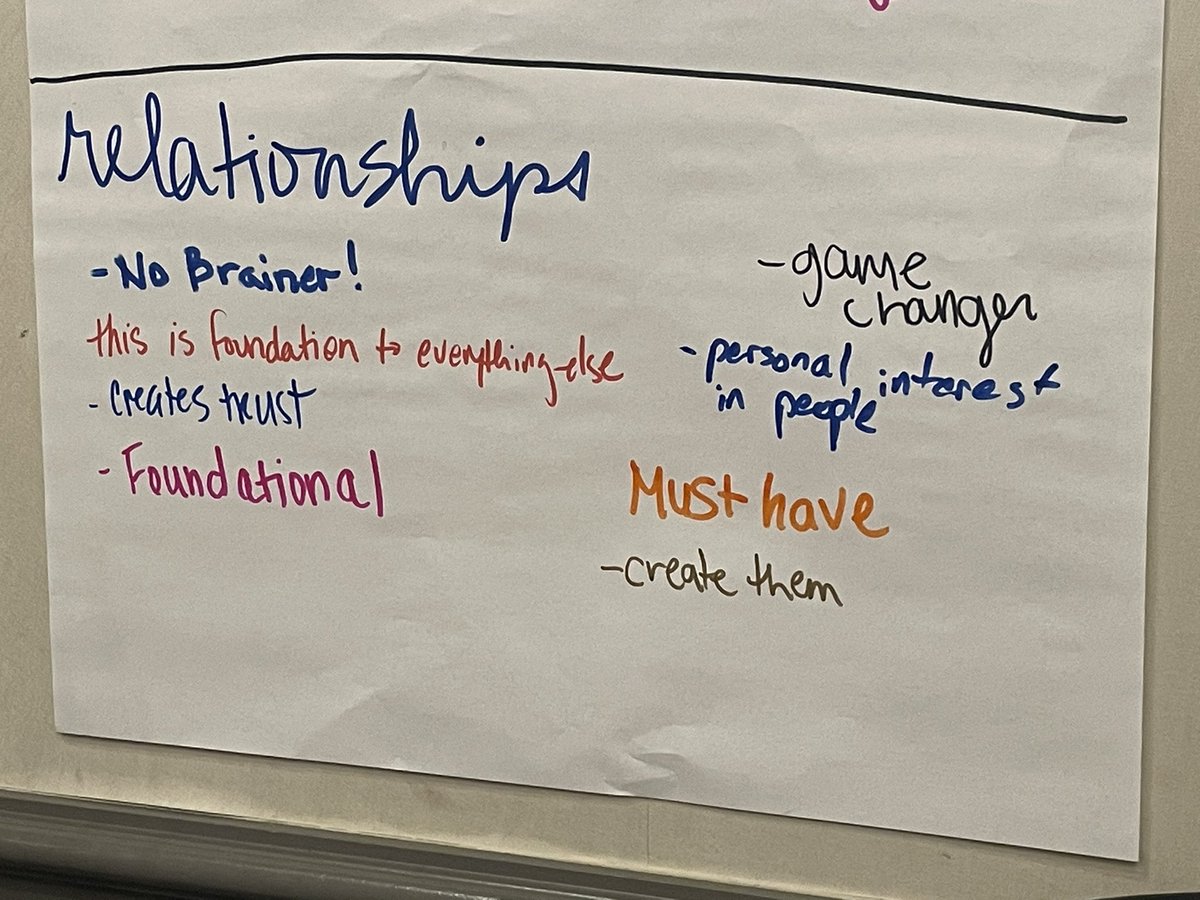 relationships
- No Brainer!
this is foundation to everything else
- creates trust
- Foundational
- game
changer
- personal interest
in people
Must have
- create them